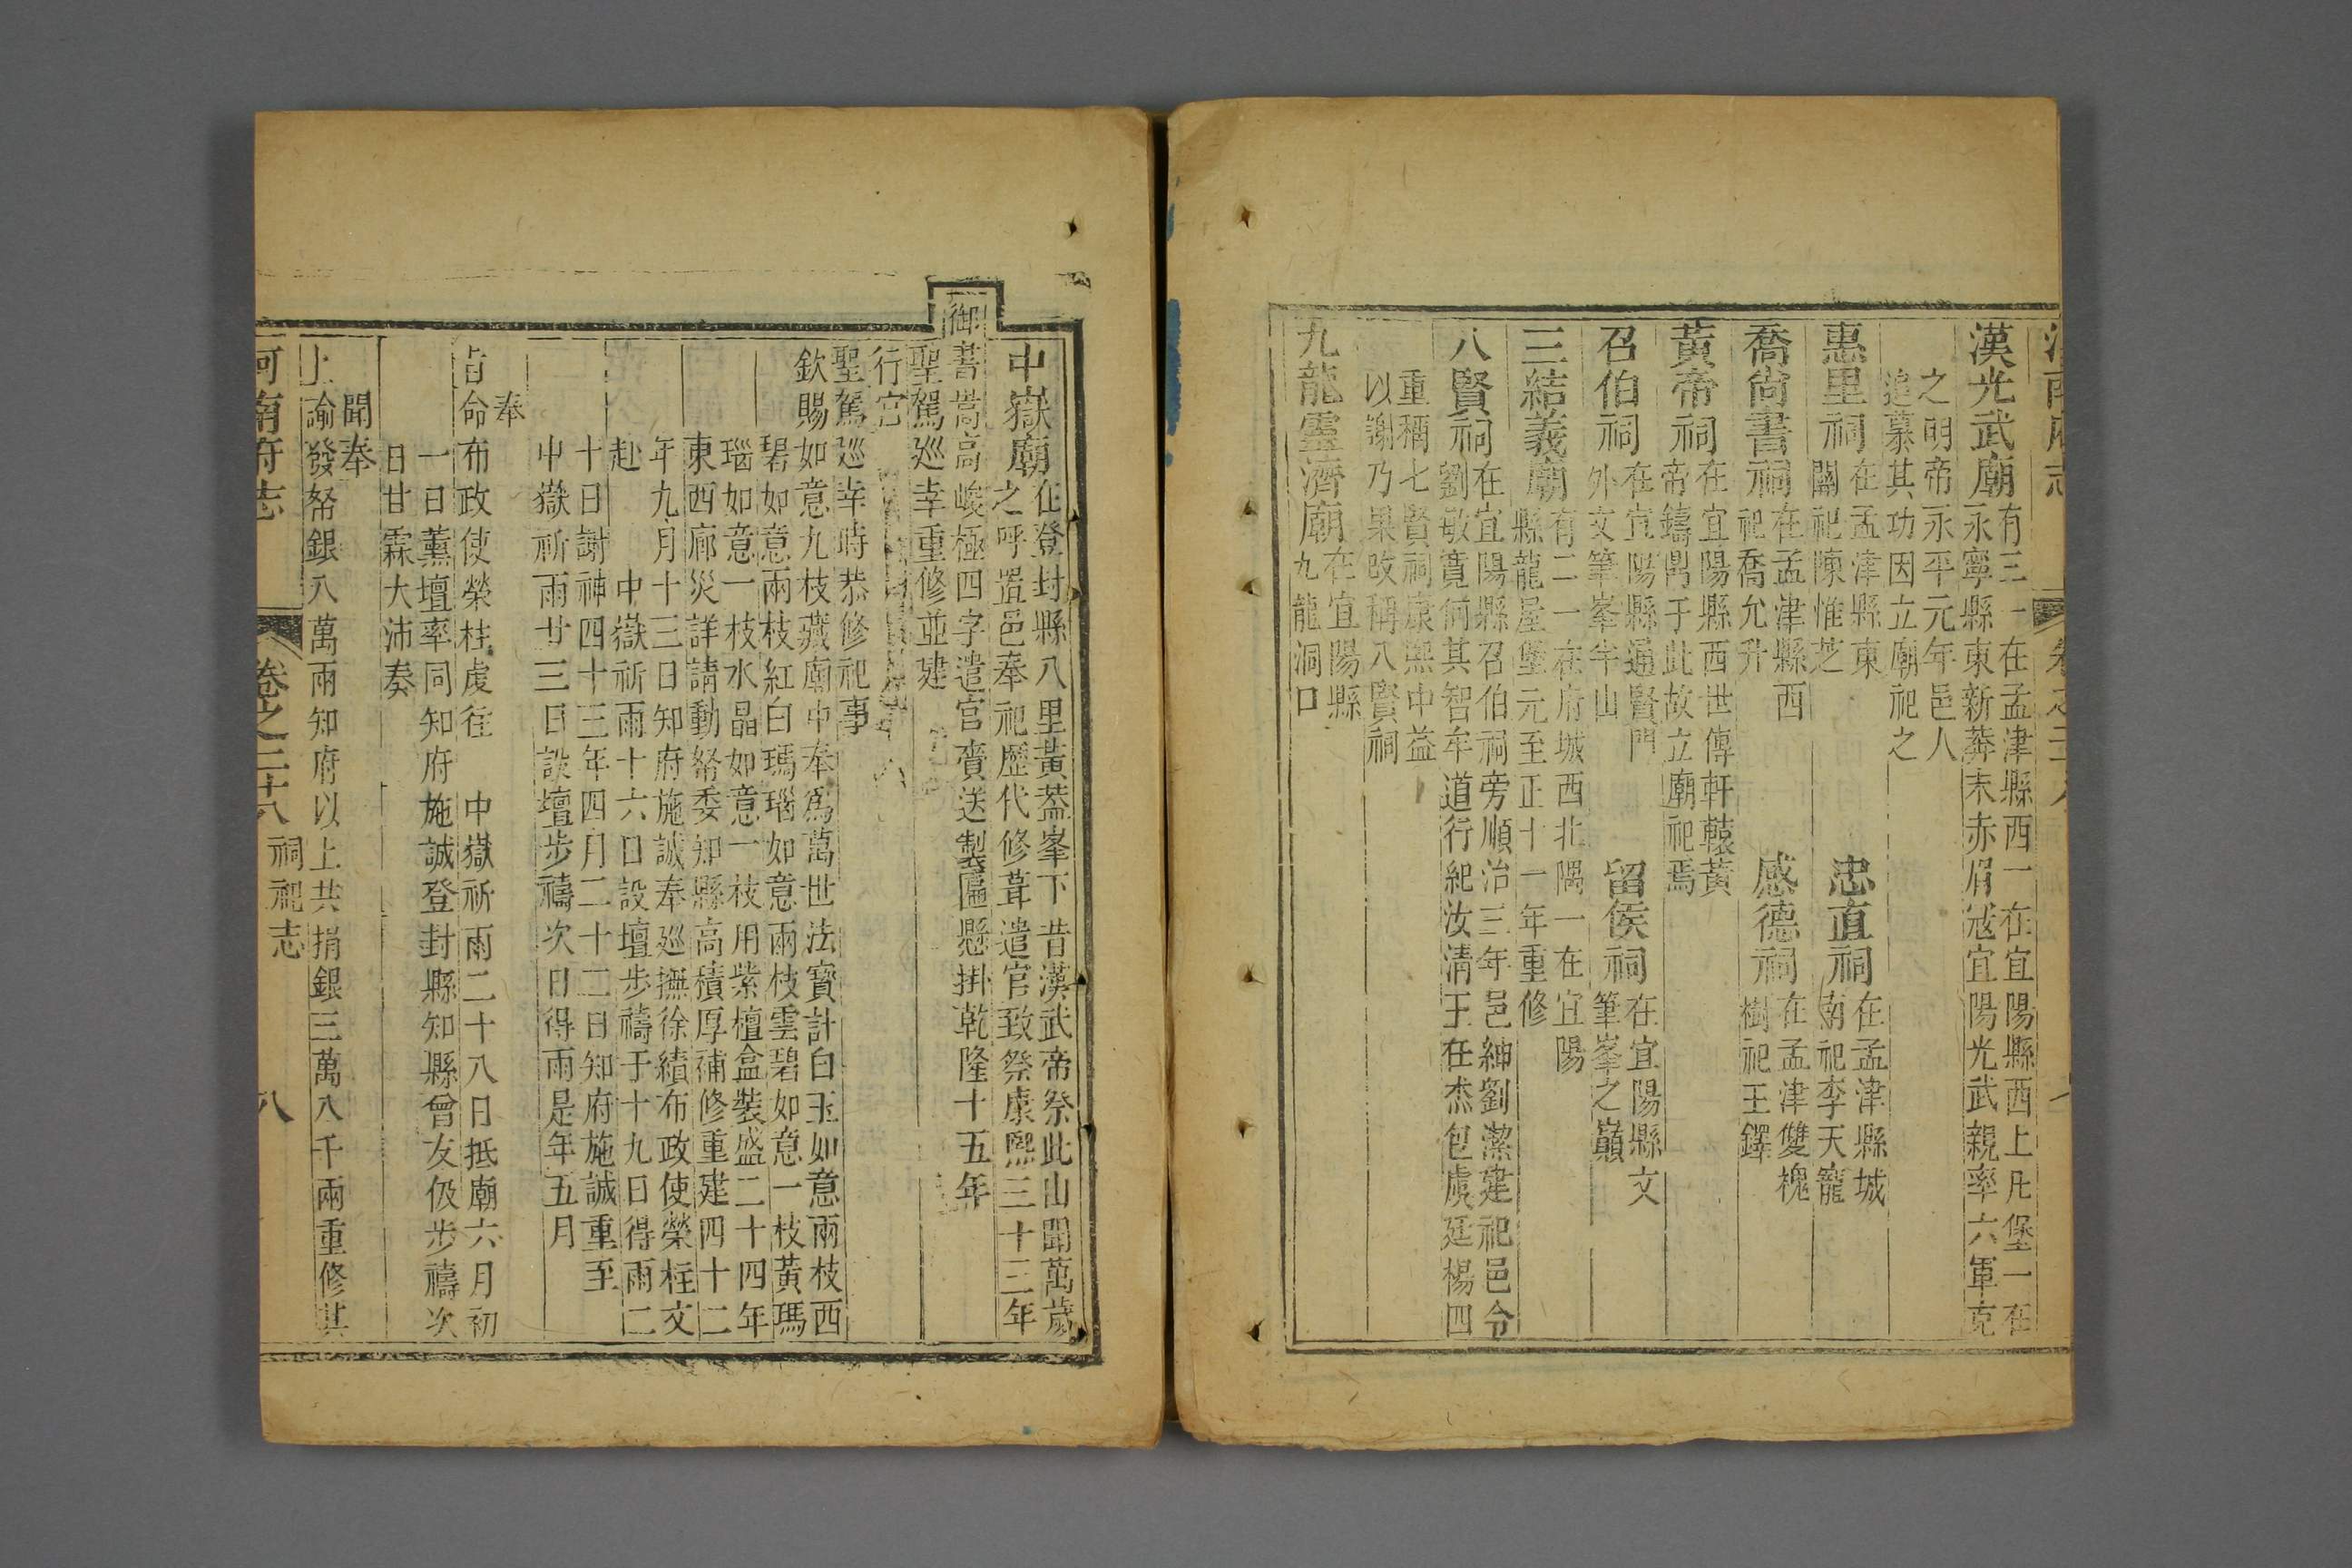 漢光武廟
有三一在孟津縣西一在宜陽縣西上凡堡一在
永寧縣東新莽末赤眉寇宜陽光武親率六軍克
之明帝永平元年邑人
追慕其功因立廟祀之
惠里祠
在孟津縣東
關祀陳惟芝
忠直祠
在孟津縣城
南祀李天寵
喬尚書祠
在孟津縣西
祀喬允升
感德祠
在孟津雙槐
樹祀王鐸
黃帝祠
在宜陽縣西世傳軒轅黃
帝鑄鼎于此故立廟祀焉
召伯祠
在宜陽縣通賢門
外文筆峯半山
留侯祠
在宜陽縣文
筆峯之巔
三結義廟
有二一在府城西北隅一在宜陽
縣龍屋堡元至正十一年重修
八賢祠
在宜陽縣召伯祠旁順治三年邑紳劉潔建祀邑令
劉敏寬何其智牟道行紀汝清王在杰包虞廷楊四
重稱七賢祠康熙中益
以謝乃果改稱八賢祠
九龍靈濟廟
在宜陽縣
九龍洞口
中嶽廟
在登封縣八里黃蓋峯下昔漢武帝祭此山聞萬歲
之呼置邑奉祀歷代修葺遣官致祭康熙三十三年
御書嵩高峻極四字遣官賫送製匾懸掛乾隆十五年
聖駕巡幸重修並建
行宮
聖駕巡幸時恭修祀事
欽賜如意九枝藏廟中奉為萬世法寶計白玉如意兩枝西
碧如意兩枝紅白瑪瑙如意兩枝雲碧如意一枝黃瑪
瑙如意一枝水晶如意一枝用紫檀盒裝盛二十四年
東西廊災詳請動帑委知縣高積厚補修重建四十二
年九月十三日知府施誠奉巡撫徐績布政使榮柱文
赴　中嶽祈雨十六日設壇步禱于十九日得雨二
十日謝神四十三年四月二十二日知府施誠重至
中嶽祈雨廿三日設壇步禱次日得雨是年五月
奉
旨命布政使榮柱虔往　中嶽祈雨二十八日抵廟六月初
一日薰壇率同知府施誠登封縣知縣曾友伋步禱次
日甘霖大沛奏
聞奉
上諭發帑銀八萬兩知府以上共捐銀三萬八千兩重修其
河南府志　卷之二十八　祠祀志　八